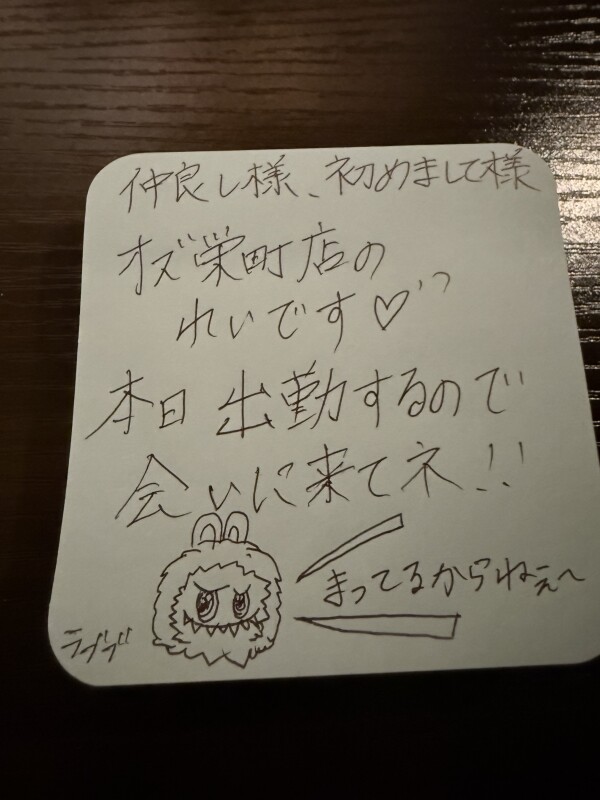 仲良し様、初めまして様
オズ栄町店の
れいです♡
本日出勤するので
会いに来てネ!!
まってるからねぇ〜
ラブブ